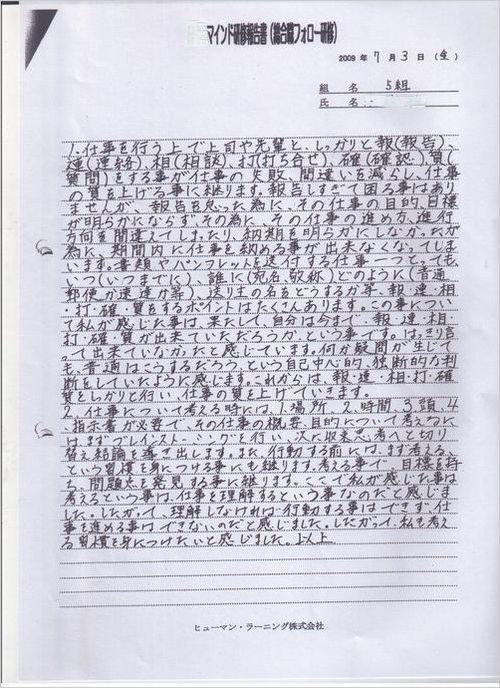 マインド研修報告書(総合職フォロー研修)
2009年 7月 3日 (金)
組 名 5組
氏 名
1.仕事を行う上で上司や先輩と、しっかりと報(報告)、
連(連絡)相(相談)、打(打ち合せ)、確(確認)、質(
質問)をする事が仕事の失敗、間違いを減らし、仕事
の質を上げる事に継ります。報告しすぎて困る事はあり
ませんが、報告を怠った為に、その仕事の目的、目標
が明らかにならず、その為に、その仕事の進め方、進行
方向を間違えてしまったり、納期を明らかにしなかったが
為に、期間内に仕事を納める事が出来なくなってしま
います。書類やパンフレットを送付する仕事一つとっても、
いつ(いつまでに)、誰に(宛名、敬称)どのように(普通
郵便か速達か等)、送り主の名をどうするか等、報・連・相
・打・確・質をするポイントはたくさんあります。この事につい
て私が感じた事は、果たして、自分は今まで、報・連・相・
打・確・質が出来ていただろうか、という事です。はっきり言
って出来ていなかったと感じています。何か疑問が生じて
も、普通はこうするだろう、という自己中心的、独断的な判
断をしていたように感じます。これからは、報・連・相・打・確
質をしっかりと行い、仕事の質を上げていきます。
2.仕事について考える時には、1.場所、2.時間、3.頭、4.
指示書が必要で、その仕事の概要、目的について考えるに
はまずブレインストーミングを行い、次に収束思考へと切り
替え結論を導き出します。また、行動する前には、まず考える、
という習慣を身につける事にも継ります。考える事で、目標を持
ち、問題点を発見する事に継ります。ここで私が感じた事は
考えるという事は、仕事を理解するという事なのだと感じま
した。したがって、理解しなければ行動する事はできず、仕
事を進める事はできないのだと感じました。したがって、私も考え
る習慣を身につけたいと感じました。以上
ヒューマン・ラーニング株式会社